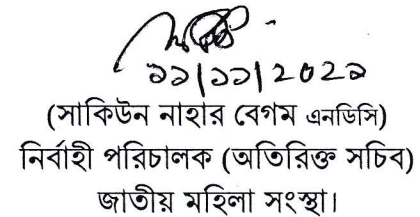 ১১/১১/২০২১
(সাকিউন নাহার বেগম এনডিসি)
নির্বাহী পরিচালক (অতিরিক্ত সচিব)
জাতীয় মহিলা সংস্থা।